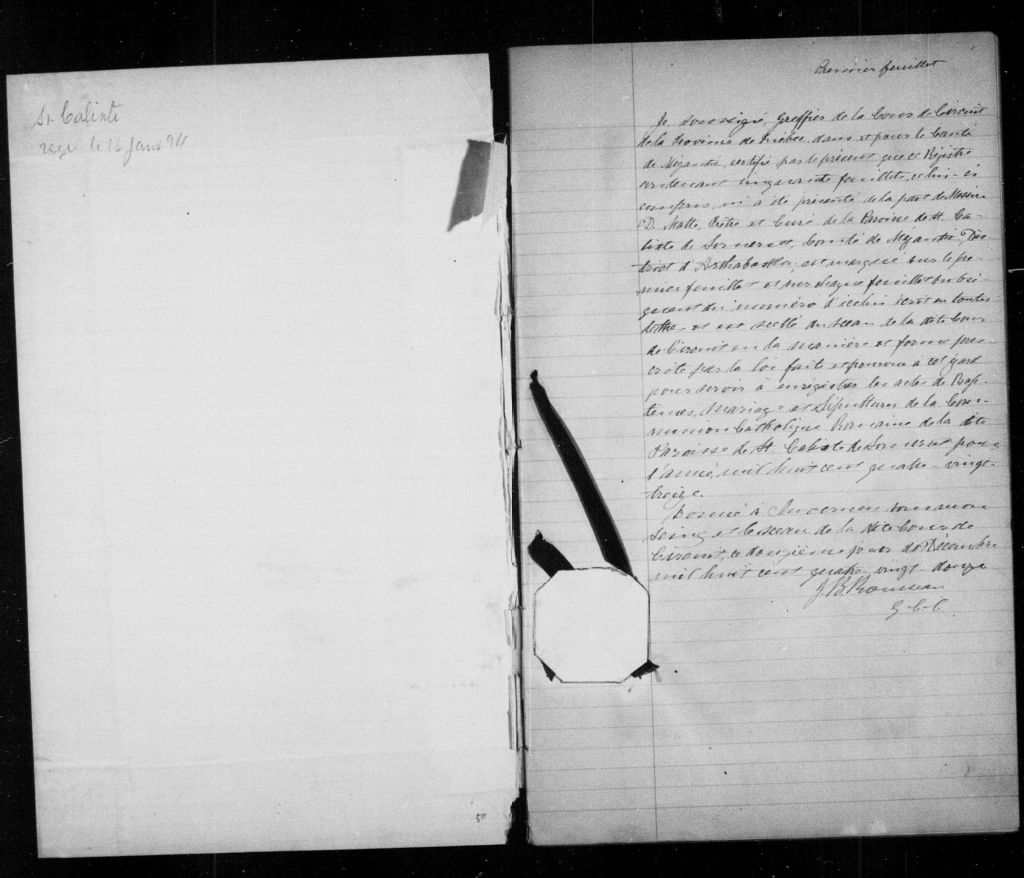 St Calixte
reçu le 16 Janv 94
50
Premier feuillet
Je soussigné, Greffier de la Cour de Circuit
de la Province de Québec, dans et pour le Comté
de Mégantic, certifie par le présent que ce Régistre
contenant cinquante feuillets, celui-ci
compris, m'a été présenté de la part de Messire
D. Matte, Prêtre et Curé de la Paroisse de St. Ca-
lixte de Somerset, Comté de Mégantic, Dis-
trict d'Arthabaska, est marqué sur le pre-
mier feuillet et sur chaque feuillet subsé-
quent du numéro d'icelui écrit en toutes
lettres et est scellé du sceau de la dite Cour
de Circuit en la manière et forme pres-
crite par la loi faite et pourvue à cet égard
pour servir à enrégistrer les actes de Bap-
têmes, Mariage et Sépultures de la Com-
munion Catholique Romaine de la dite
Paroisse de St. Calixte de Somerset pour
l'année mil huit cent quatre-vingt-
treize.
Donné à Inverness sous mon
seing et le sceau de la dite Cour de
Circuit, ce douzième jour de Décembre
mil huit cent quatre-vingt-douze
J. B. Rousseau
G. C. C.